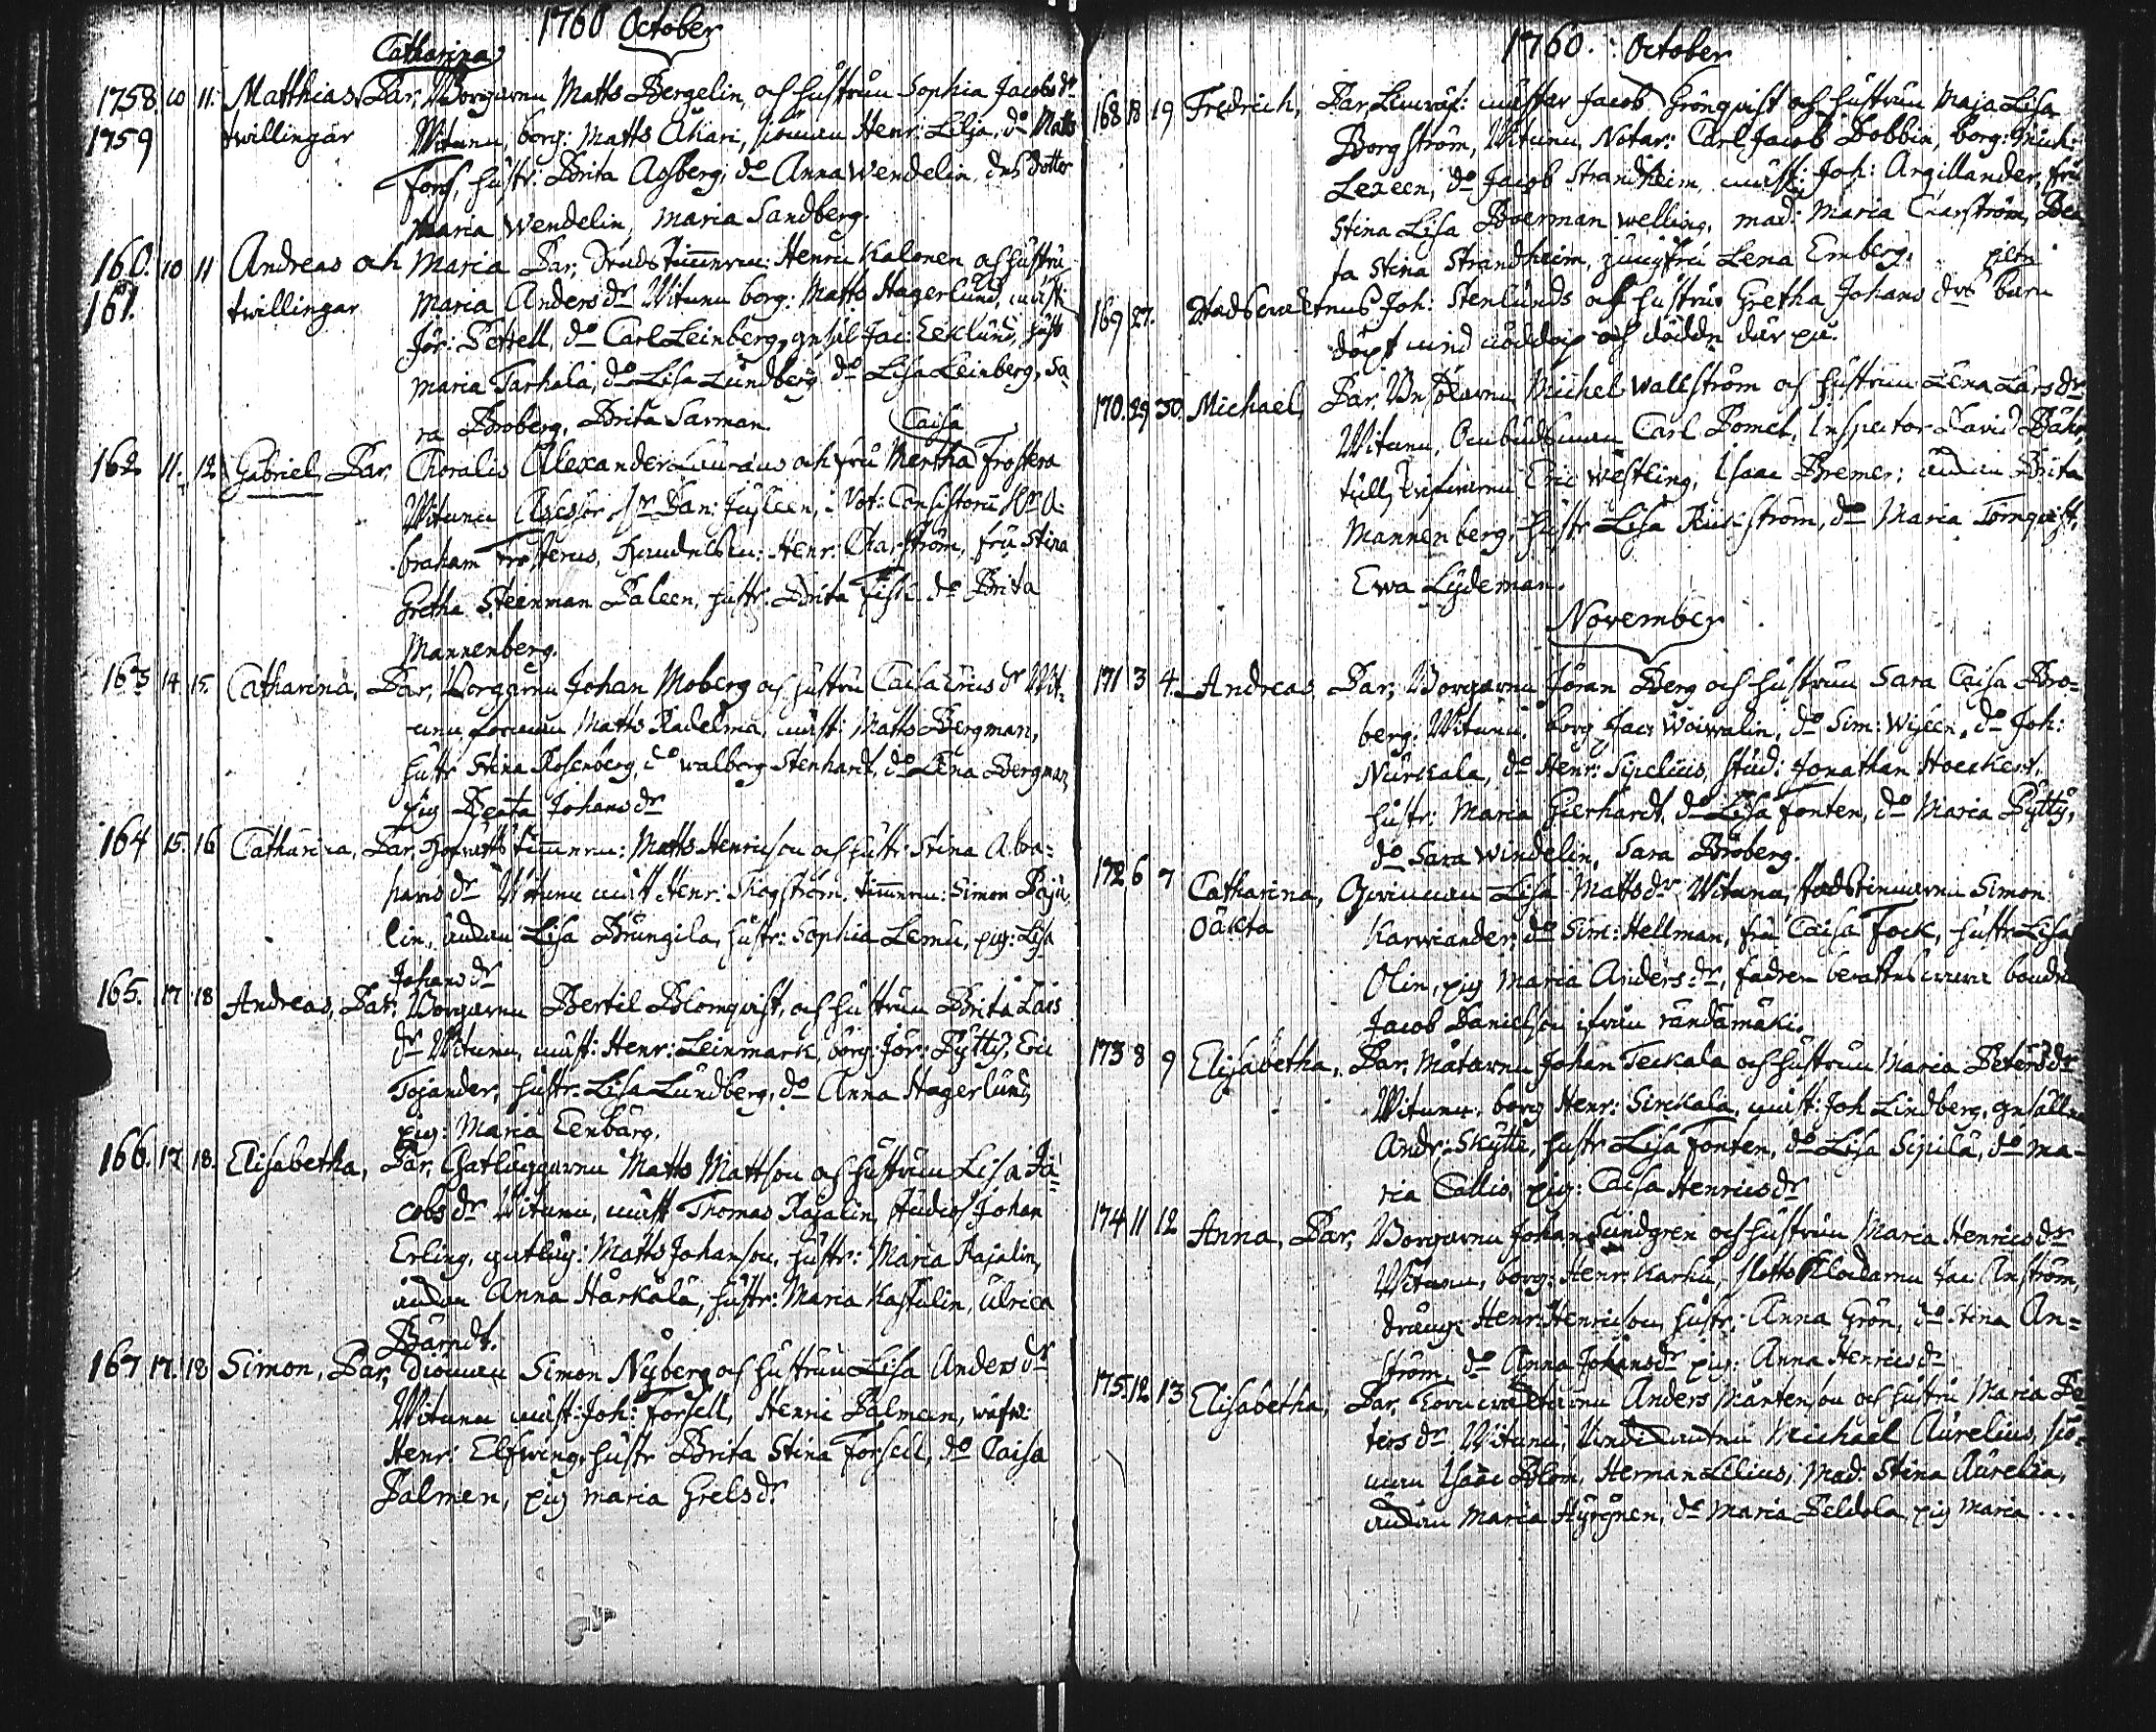 1760 October
Catharina
1758. 10 11. Matthias, Par, Borgaren Matts Bergelin, och hustrun Sophia Jacobs dr
1759 twillingar Witnen, borg: Matts Ahari, sioman Henr: Lilja, do Matts
Fors, hustr: Brita Agberg, do Anna Wendelin, dess dotter
Maria Wendelin, Maria Sandberg.
160. 10 11 Andreas och Maria Par, timmerm: Henric Kalonen och hustru
161. twillingar Maria Anders dr Witnen borg: Matts Hagerlund, mäst:
Jör: Settell, do Carl Leinberg, gesäl Jac: Eeklund, hust
Maria Tarhala, do Lisa Lundberg do Lisa Leinberg, Sa
ra Broberg, Brita Sarman
Caisa
162 11. 12 Gabriel, Par, Choralis Alexander Lauraeus och fru Mertha Frostera
Witnen Assessor Hr Dan: Jusleen, Not: Consistorii Hr A:
braham Frosterus, Handelsm: Henr: Charström, fru Stina
Gretha Steenman Paleen, hustr. Brita Fisk do Brita
Mannenberg.
163 14. 15. Catharina, Par, Borgaren Johan Moberg och hustru Caisa Erics dr Wit:
nen, Matts Radelma, mäst: Matts Bergman,
hustr Stina Rosenberg, do Walborg Stenhardt, do Lena Bergman,
pig Beata Johans dr
164 15. 16 Catharina, Par, Hofrätts timmerm: Matts Henricson och hustr Stina Abra:
hams dr Witnen mäst Henr: Skogström, timmerm: Simon Paju
lin, änkan Lisa Brungila, hustr: Sophia Lemu, pig: Lisa
Johans dr
165. 17 18 Andreas, Par, Borgaren Bertil Blomqvist, och hustrun Brita Lars
dr Witnen, mäst: Henr: Leinmark, borg: Jör: Pytty, Eric
Tojander, hustr. Lisa Lundberg, do Anna Hagerlund,
pig: Maria Eenbärg.
166. 17 18. Elisabetha, Par, Gatläggaren Matts Mattson och hustrun Lisa Ja
cobs dr Witnen, mäst Thomas Rajalin, studios Johan
Erling, gatläg: Matts Johanson, hustr: Maria Rajalin,
änkan Anna Härkälä, hustr: Maria Kaskulin, Ulrica
Bärndt.
167 17. 18 Simon, Par, Siöman Simon Nyberg och hustrun Lisa Anders dr
Witnen mäst: Joh: Forsell, Henric Palmen, wäfw:
Henr: Elfwing, hustr Brita Stina Forsell, do Caisa
Palmen, pig Maria Grels dr
1760. October
168 18 19 Fredrich, Par, mästar Jacob Grönqvist och hustrun Maja Lisa
Borgström, Witnen, Notar: Carl Jacob Bobbin, borg:
Lexeen, do Jacob Strandheim mäst: Joh: Argillander, fru
Stina Lisa Boerman Welling, mad: Maria Charström, Bea
ta Stina Strandheim, jungfru Lena Emberg. piltn
169 27. Joh: Stenlunds och hustrus Gretha Johans drs barn
döpt med nöddop och dödde där på.
170. 29 30. Michael, Par, Michel Wallström och hustrun Lena Lars dr
Witnen, Ombudsman Carl Bomet, Inspector David Bähr,
tull Eric Westling, Isaac Bremer: änkan Brita
Mannenberg, hustr Lisa Ruuström, do Maria Törnqvist,
Ewa Lydeman.
November
171 3 4. Andreas Par, Borgaren Jöran Berg och hustrun Sara Caisa Bro=
berg. Witnen, borg Jac: Woiwalin, do Sim: Wijleen, do Joh:
Nurkala, do Henr: Sipelius, stud: Jonathan Hoeckert,
hustr: Maria Gerhardt, do Lisa Fonten, do Maria Pytty,
do Sara Windelin, Sara Broberg.
172 6 7 Catharina, Qwinnan Lisa Matts dr Witnen, Simon
Oäkta Karwiander, do Sim: Hellman, fru Caisa Fock, hustr Lisa
Olin, pig Maria Anders: dr, fadren berättas wara bonden
Jacob Danielson ifrån rändämäki.
173 8 9 Elisabetha, Par, Mätaren Johan Teckala och hustrun Maria Peters dr
Witnen, borg Henr: Sirckala, mäst: Joh Lindberg, gesällen
Andr: Skytta, hustr Lisa Fonten, do Lisa Sipilä, do Ma=
ria Callio, pig: Caisa Henrics dr
174 11 12 Anna, Par, Borgaren Johan Sundgren och hustrun Maria Henrics dr
Witnen, borg: Henr: Karhu, Slotts Jac: Anström,
dräng: Henr: Henricson, hustr: Anna Grön, do Stina An=
ström, do Anna Johans dr pig: Anna Henrics dr
175. 12 13 Elisabetha, Par, Anders Mårtenson och hustru Maria Pe
ters dr Witnen, Michael Aurelius, siö=
man Isaac Blom, Herman Lilius, Mad: Stina Aurelia,
änkan Maria Hyrynen, do Maria Peldola pig Maria ...